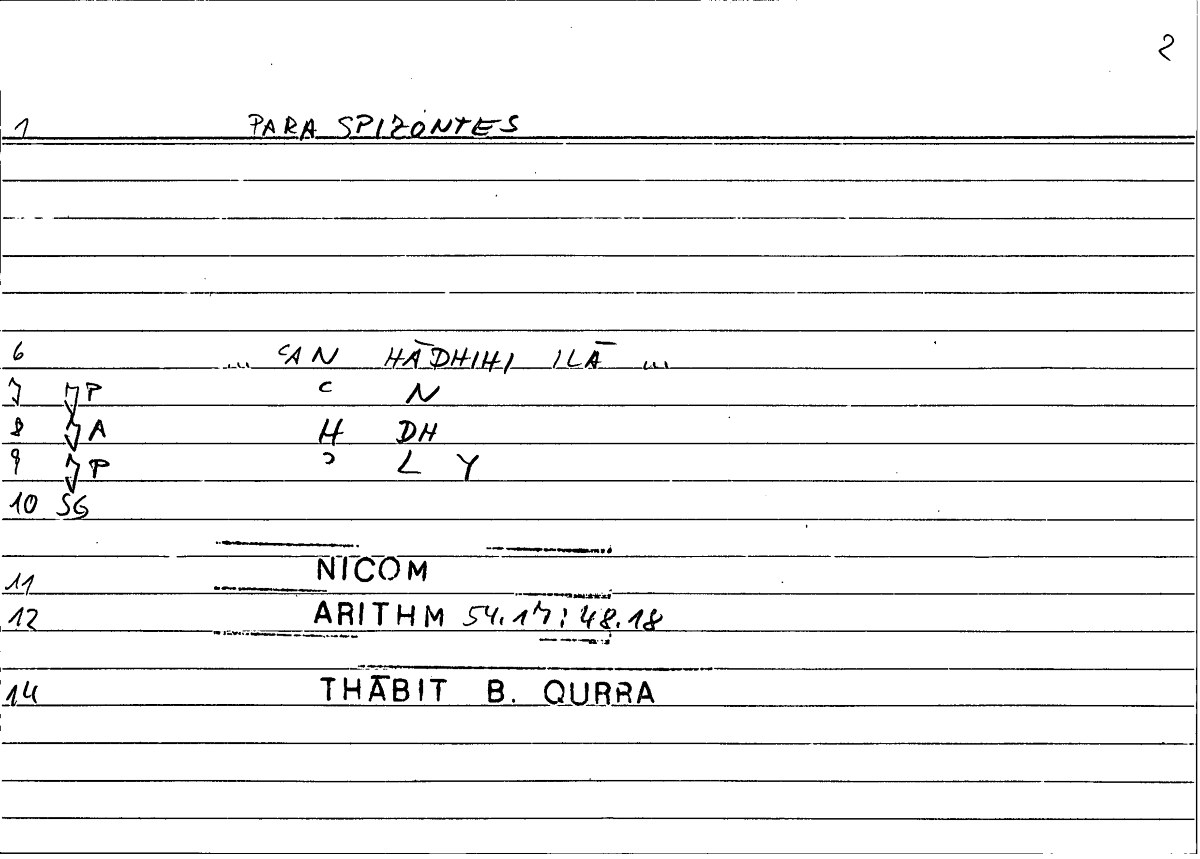 2
1 PARA SPIZÓNTES
6 ... ʿAN HĀDHIHI ILĀ ...
7 P ʿ N
8 A H DH
9 P ʾ L Y
10 SG
11 NICOM
12 ARITHM 54.17 : 48.18
14 THĀBIT B. QURRA